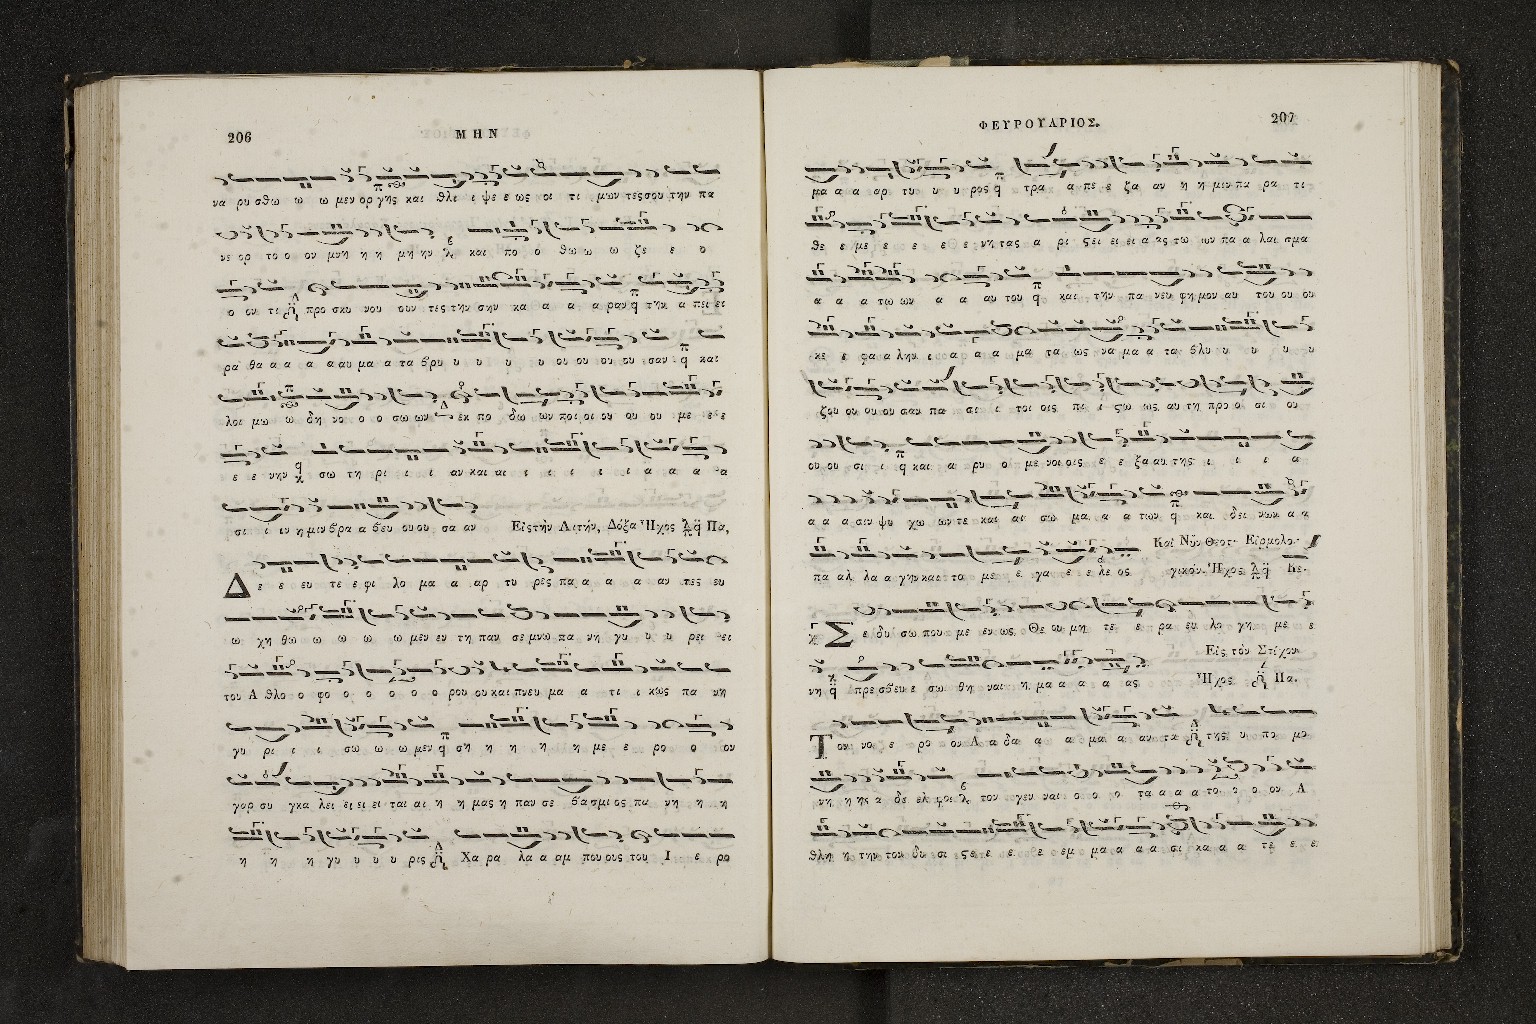 206
ΜΗΝ
να ρυ σθω ω ω μεν ορ γης και θλι ι ψε ε ως οι τι μων τες σου την πα
νε ορ το ο ον μνη η η μη ην και πο ο θω ω ω ζε ε ο
ο ον τι προ σκυ νου ουν τες την σην κα α α α ραν την α πει ει
ρα θα α α α αυ μα α τα βρυ υ υ υ υ ου ου ου ου σαν και
λοι μω ω δη νο ο ο σω ων εκ πο δω ων ποι οι ου ου ου με ε ε
ε ε νην σω τη ρι ι ι αν και αι ι ι ι ι ι α α α α
σι ι ιν η μιν βρα α βευ ου ου σα αν Εις τὴν Λιτὴν, Δόξα Ἦχος Πα,
Δε ε ευ τε ε φι λο μα α αρ τυ ρες πα α α α αν τες ευ
ω χη θω ω ω ω ω μεν εν τη παν σε μνω πα νη γυ υ υ ρει ει
του Α θλο ο φο ο ο ο ο ο ρου ου και πνευ μα α τι ι κως πα νη
γυ ρι ι ι σω ω ω μεν ση η η η η με ε ρο ο ον
γαρ συ γκα λει ει ει ει ται αι η η μας η παν σε βα σμι ος πα νη η η
η η η γυ υ υ υ ρις Χα ρα λα α αμ που ους του Ι ε ρο
ΦΕΥΡΟΥΑΡΙΟΣ.
207
μα α α αρ τυ υ υ ρος τρα α πε ε ζα αν η η μιν πα ρα τι
θε ε με ε ε ε ε νη τας α ρι ςει ει ει α ας τω ων πα α λαι σμα
α α α τω ων α α αυ του και την πα νευ φη μον αυ του ου ου
κε ε φα α λην ι α α α μα τα ως να μα α τα βλυ υ υ υ υ
ζου ου ου ου σαν πα σι ι τοι οις πι ι ςω ως αυ τη προ ο σι ου
ου ου σι ι και α ρυ ο με νοι οις ε ε ξα αυ της ι ι ι α
α α α σιν ψυ χω ων τε και αι σω μα α α των και δει νων α α
πα αλ λα α γην και το με ε γα ε ε λε ος Καὶ Νῦν Θεοτ· Εἱρμολο-
γικόν. Ἦχος Κε.
Σε δυ σω που με εν ως Θε ου μη τε ε ρα ευ λο γη με ε
νη πρε σβευ ε σω θη ναι η μα α α α ας
Εἰς τὸν Στίχον
Ἦχος Πα.
Τον νο ε ρο ον Α α δα α α μα α αν τα της υ πο μο
νη η ης α δε ελ φοι τον γεν ναι ο ο ο τα α α α το ο ο ον Α
θλη η την τον δυ σι ςε ε ε ε εμ μα α α α σι κα α α τε ε ε